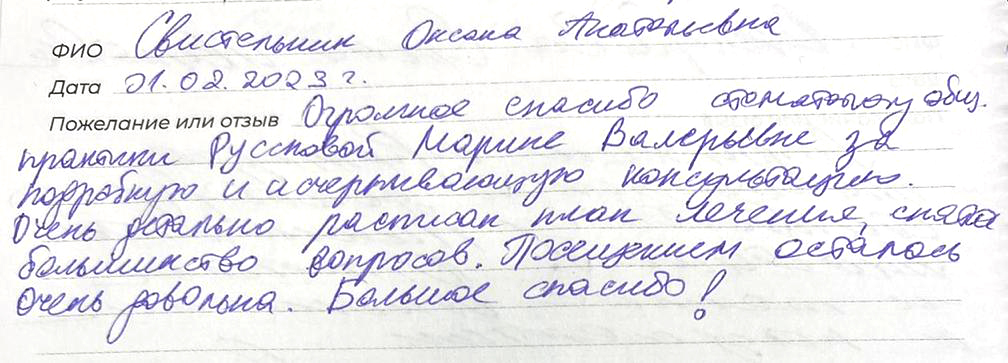 ФИО Свистельник Оксана Анатольевна
Дата 01.02.2023 г.
Пожелание или отзыв Огромное спасибо стоматологу общ.
практики Руссковой Марине Валерьевне за
подробную и исчерпывающую консультацию.
Очень детально расписан план лечения, снята
большинство вопросов. Посещением осталась
очень довольна. Большое спасибо!